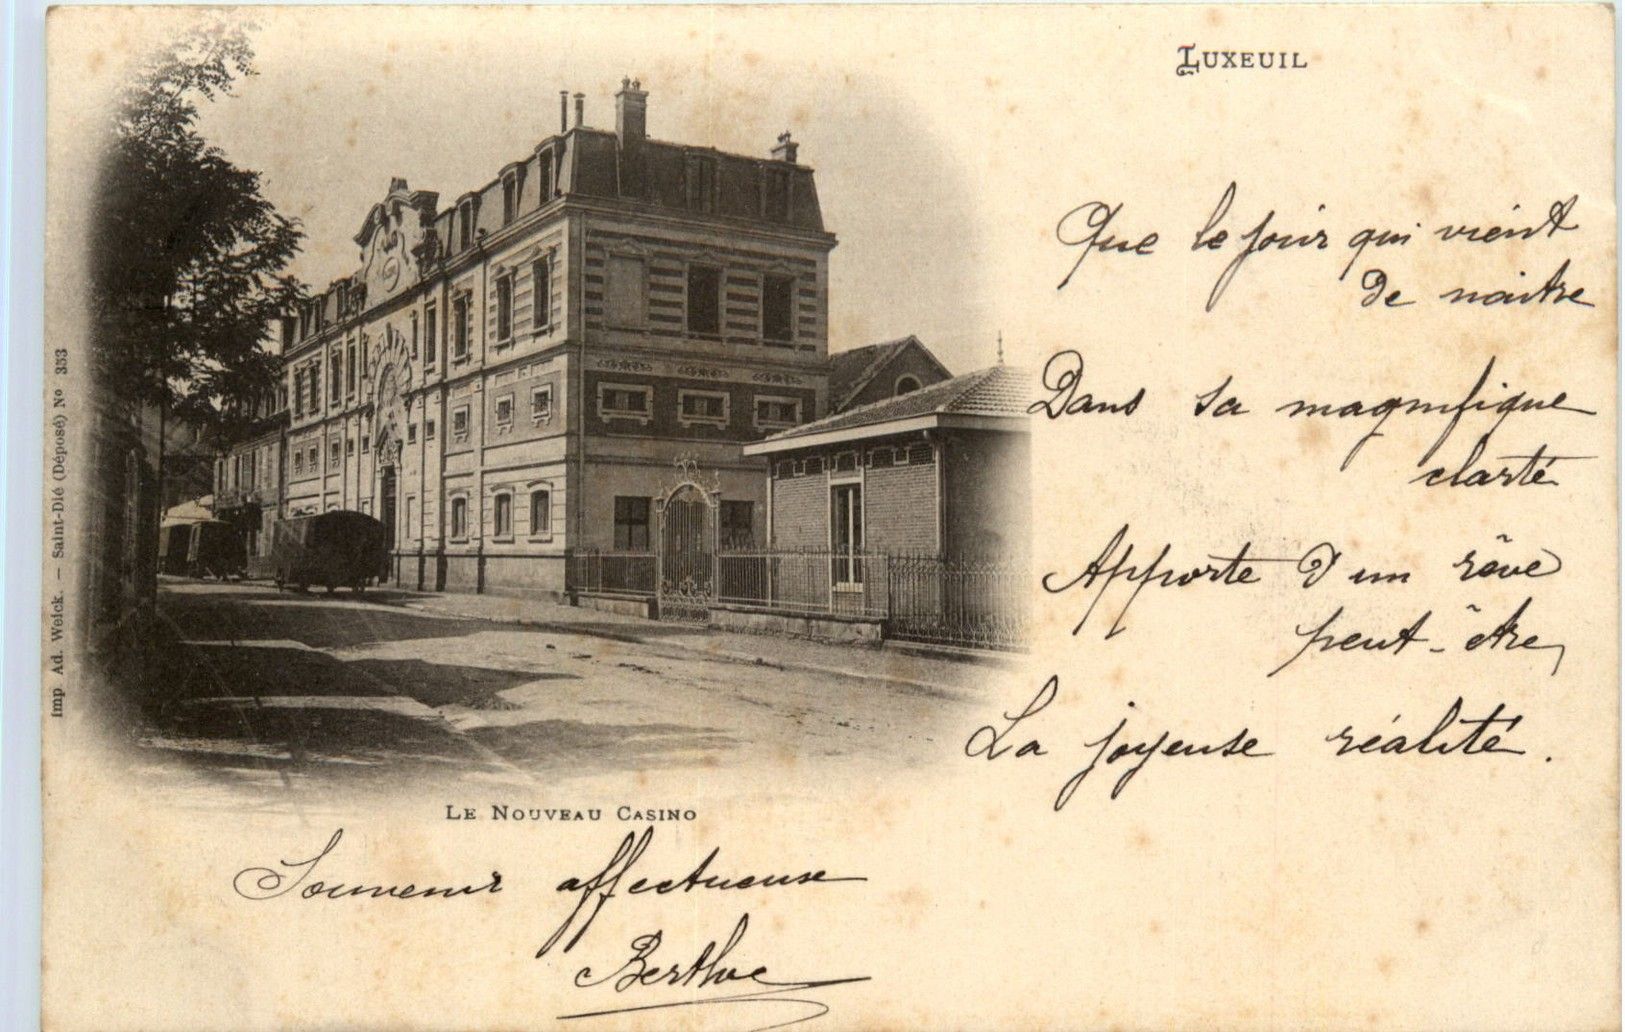 LUXEUIL
Que le jour qui vient
de naitre
Dans sa magnifique
clarté
Apporte d'un rêve
peut-être,
La joyeuse réalité.
LE NOUVEAU CASINO
Souvenir affectueuse
Berthe
Imp Ad. Weick. — Saint-Dié (Déposé) Nº 353